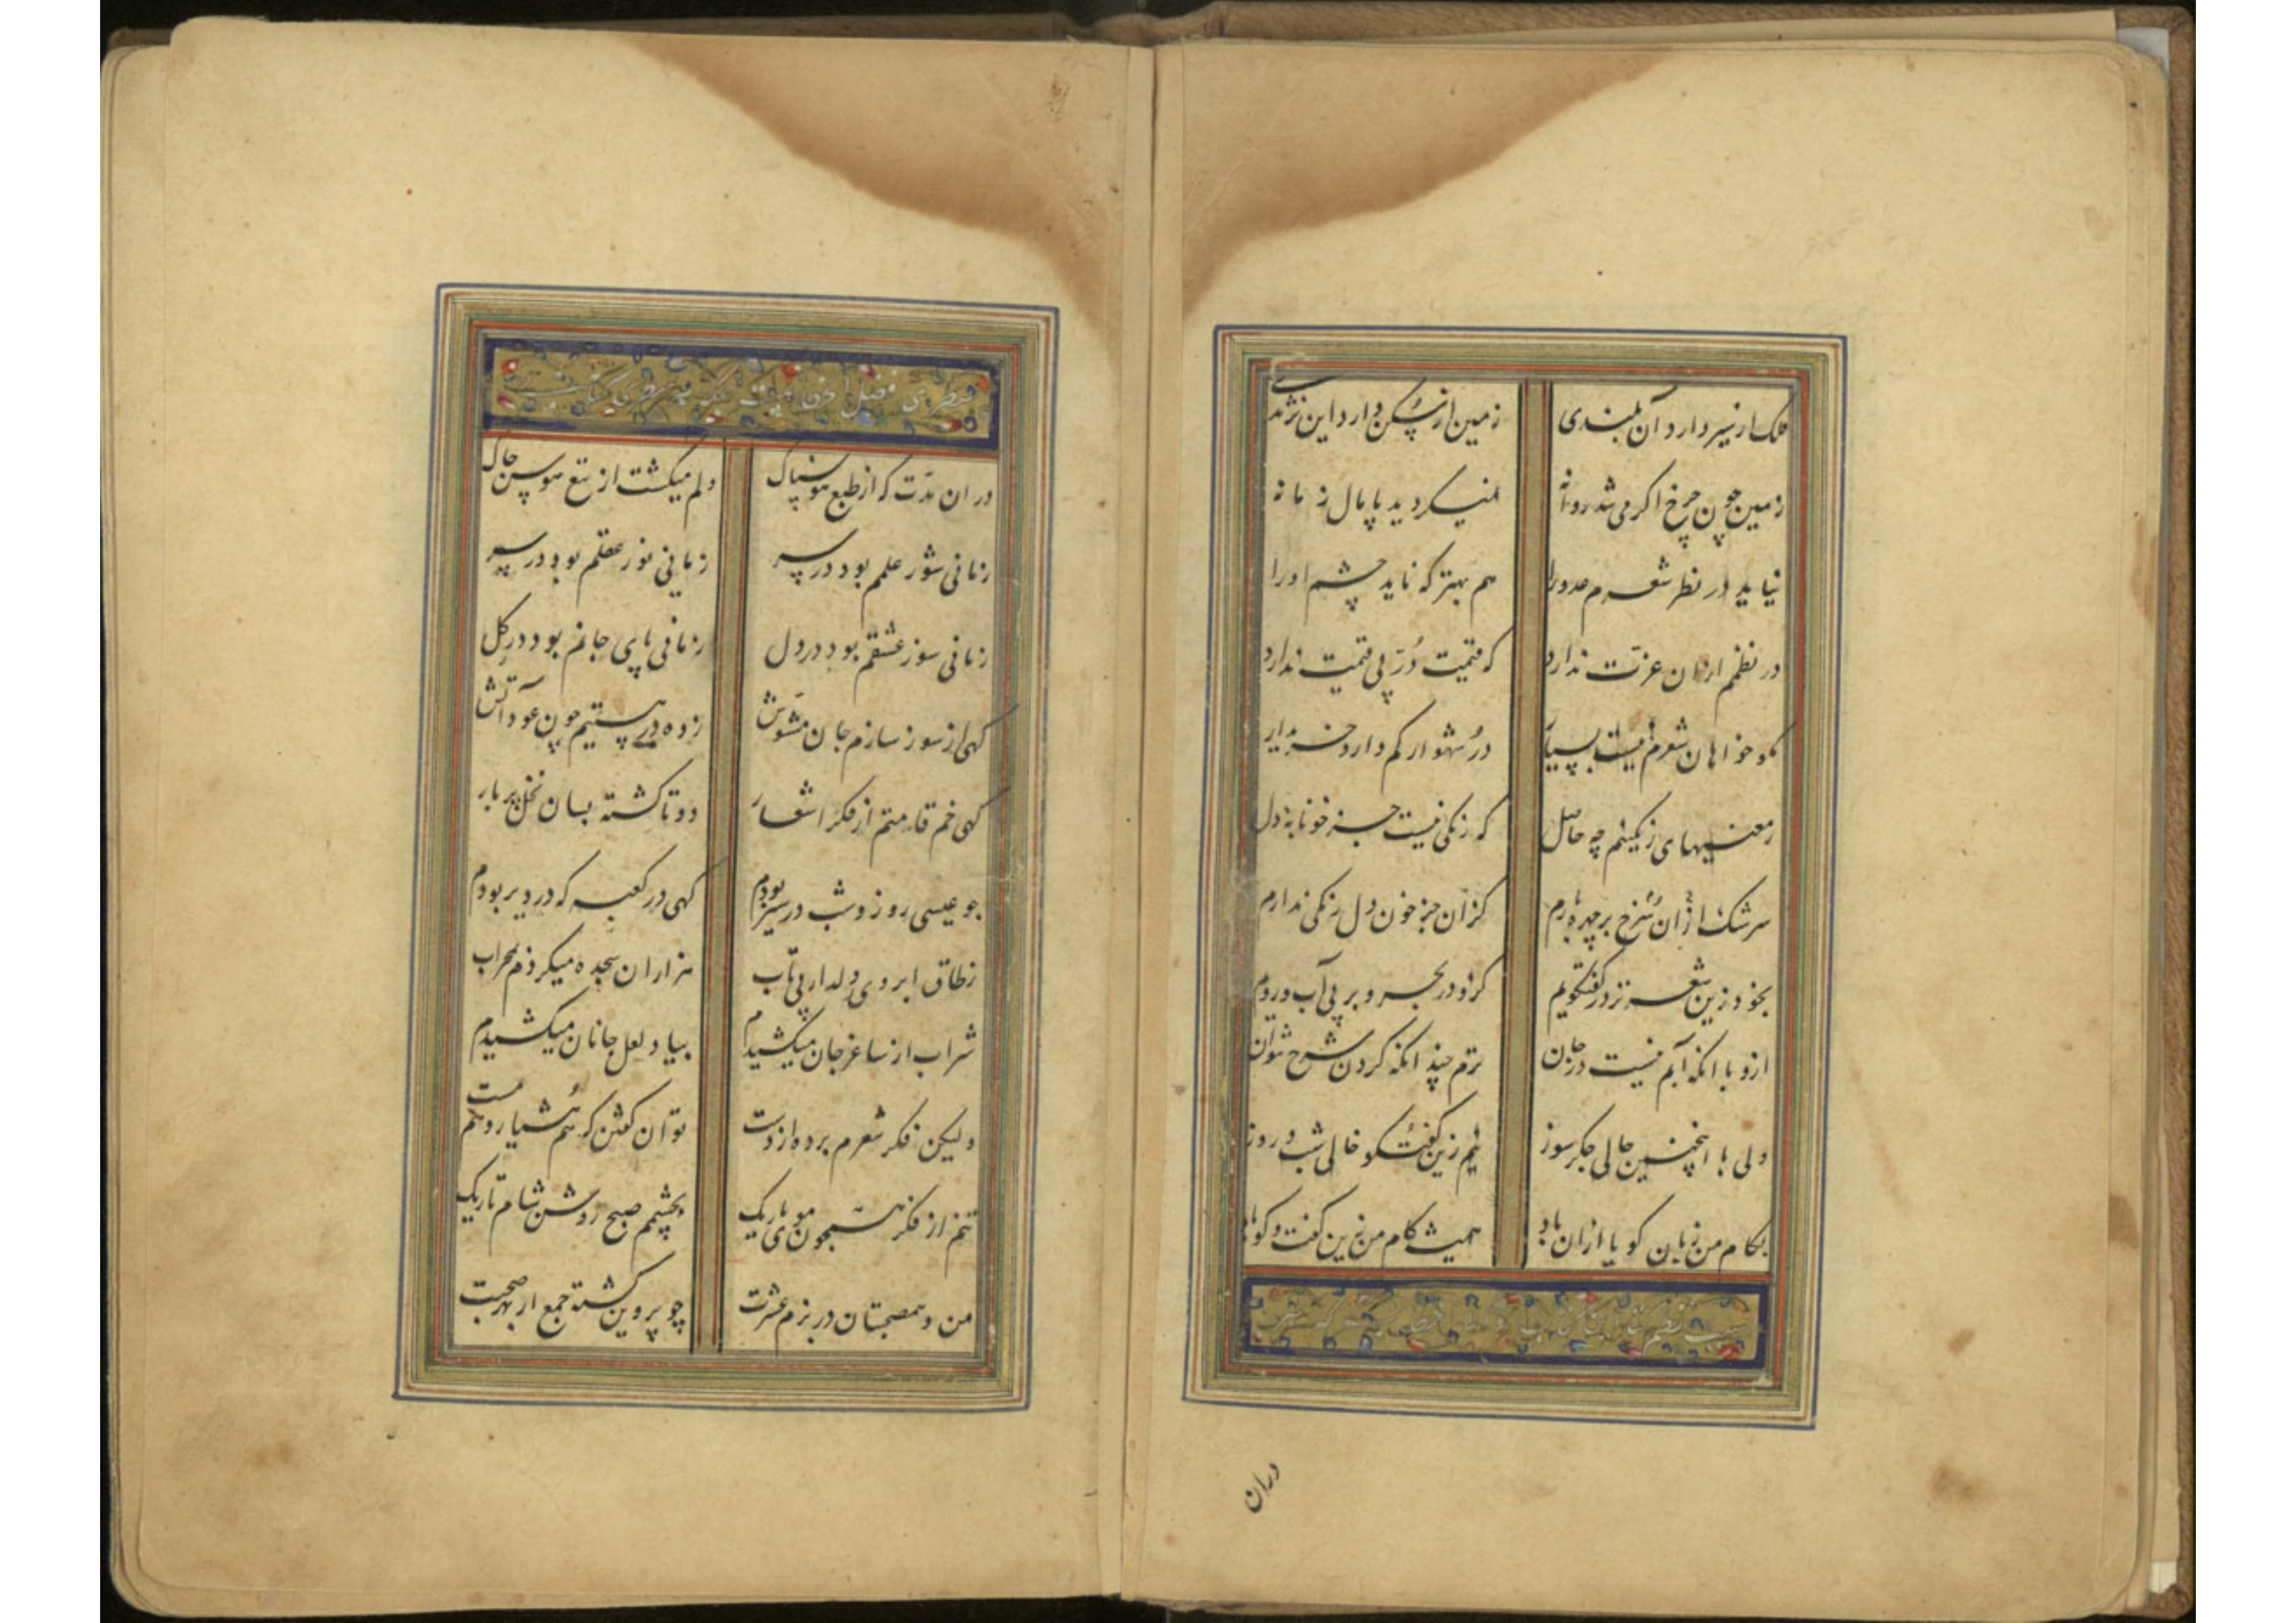 فلک از سیر دارد آن بلندی زمین از پس سکن دارد این نژندی
زمین چون چرخ اکر می شد روانه نمیکردید پایمال زمانه
نیاید در نظر شعرم عدو را هم بهتر که ناید چشم او را
در نظمم ازان عزت ندارد که قیمت دُرّ بی قیمت ندارد
نکو خواهان شعرم نیست بسیار درُ شهوار کم دارد خریدار
ز معنیهای رنکینم چه حاصل که رنکی نیست جز خونابهٔ دل
سرشک ازان سُرخ بر چهره بارم کزان جز خون دل رنکی ندارم
بخود زین شعر تر در کفتکویم کزو در بحر و بر بی آب رویم
ازو با انکه آبم نیست در جان ترم چندانکه کردن شرح نتوان
ولی با اینچنین حالی جکرسوز نیم زین کفت و کو خالی شب و روز
بکام من زبان کویا ازان باد همیشه کام من زین کفت و کو باد
سبب نظم
دران
دران مدّت که از طبع هوسناک دلم میکشت از تیغ هوس چاک
زمانی شور علمم بود در سر زمانی نور عقلم بود در بر
زمانی سوز عشقم بود در دل زمانی پای جانم بود در کل
کهی از سوز سازم جان مشوّش زده در هستیم چون عود آتش
کهی خم قامتم از فکر اشعار دوتا کشته بسان نخل پر بار
چو عیسی روز و شب در سیر بودم کهی در کعبه که در دیر بودم
ز طاق ابروی دلدار بی تاب هزاران سجده میکردم بمحراب
شراب از ساغر جان میکشیدم بیاد لعل جانان میکشیدم
ولیکن فکر شعرم برده از دست توان کفتن که هم هشیار و هم مست
تنم از فکر همچون موی باریک بچشمم صبح روشن شام تاریک
من و همصحبتان در بزم عشرت چو پروین کشته جمع از بهر صحبت